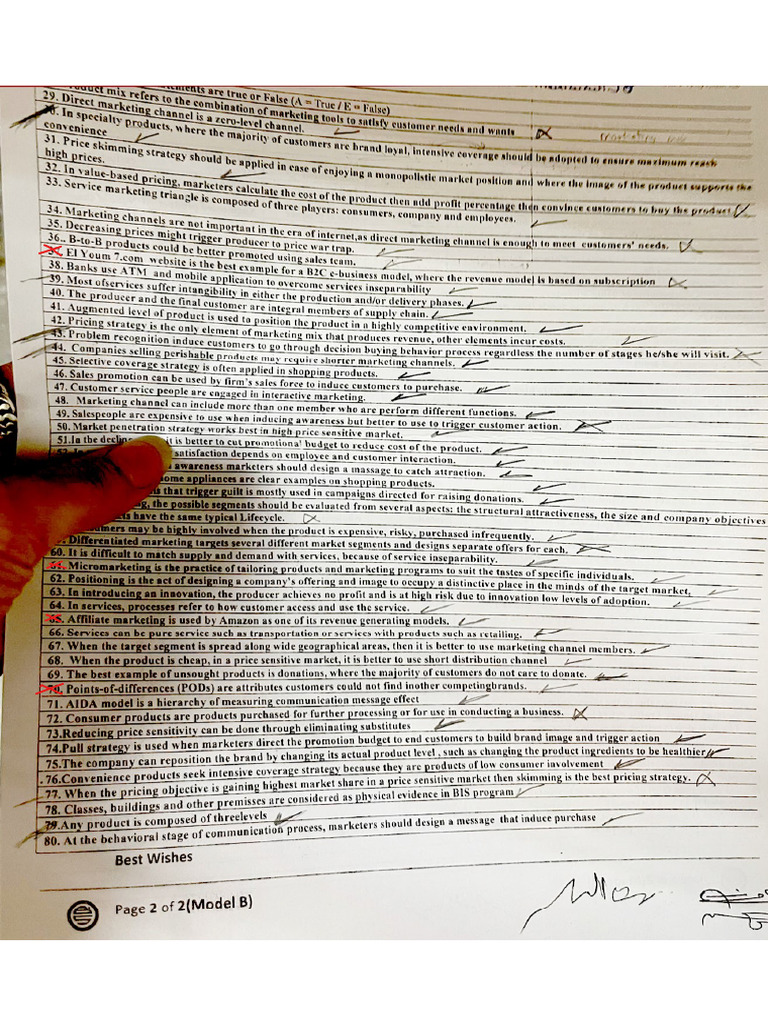 ements are true or False (A = True / E = False)
roduct mix refers to the combination of marketing tools to satisfy customer needs and wants
29. Direct marketing channel is a zero-level channel.
30. In specialty products, where the majority of customers are brand loyal, intensive coverage should be adopted to ensure maximum reach
convenience
31. Price skimming strategy should be applied in case of enjoying a monopolistic market position and where the image of the product supports the
high prices.
32. In value-based pricing, marketers calculate the cost of the product then add profit percentage then convince customers to buy the product
33. Service marketing triangle is composed of three players: consumers, company and employees.
34. Marketing channels are not important in the era of internet,as direct marketing channel is enough to meet customers' needs.
35. Decreasing prices might trigger producer to price war trap.
36.. B-to-B products could be better promoted using sales team.
37. El Youm 7.com website is the best example for a B2C e-business model, where the revenue model is based on subscription
38. Banks use ATM and mobile application to overcome services inseparability
39. Most ofservices suffer intangibility in either the production and/or delivery phases.
40. The producer and the final customer are integral members of supply chain.
41. Augmented level of product is used to position the product in a highly competitive environment.
42. Pricing strategy is the only element of marketing mix that produces revenue, other elements incur costs.
43. Problem recognition induce customers to go through decision buying behavior process regardless the number of stages he/she will visit.
44. Companies selling perishable products may require shorter marketing channels.
45. Selective coverage strategy is often applied in shopping products.
46. Sales promotion can be used by firm's sales force to induce customers to purchase.
47. Customer service people are engaged in interactive marketing.
48. Marketing channel can include more than one member who are perform different functions.
49. Salespeople are expensive to use when inducing awareness but better to use to trigger customer action.
50. Market penetration strategy works best in high price sensitive market.
51.In the declin it is better to cut promotional budget to reduce cost of the product.
satisfaction depends on employee and customer interaction.
awareness marketers should design a massage to catch attraction.
ome appliances are clear examples on shopping products.
s that trigger guilt is mostly used in campaigns directed for raising donations.
ng, the possible segments should be evaluated from several aspects: the structural attractiveness, the size and company objectives
ts have the same typical Lifecycle.
sumers may be highly involved when the product is expensive, risky, purchased infrequently.
Differentiated marketing targets several different market segments and designs separate offers for each.
60. It is difficult to match supply and demand with services, because of service inseparability.
61. Micromarketing is the practice of tailoring products and marketing programs to suit the tastes of specific individuals.
62. Positioning is the act of designing a company's offering and image to occupy a distinctive place in the minds of the target market,
63. In introducing an innovation, the producer achieves no profit and is at high risk due to innovation low levels of adoption.
64. In services, processes refer to how customer access and use the service.
65. Affiliate marketing is used by Amazon as one of its revenue generating models.
66. Services can be pure service such as transportation or services with products such as retailing.
67. When the target segment is spread along wide geographical areas, then it is better to use marketing channel members.
68. When the product is cheap, in a price sensitive market, it is better to use short distribution channel
69. The best example of unsought products is donations, where the majority of customers do not care to donate.
70. Points-of-differences (PODs) are attributes customers could not find inother competingbrands.
71. AIDA model is a hierarchy of measuring communication message effect
72. Consumer products are products purchased for further processing or for use in conducting a business.
73.Reducing price sensitivity can be done through eliminating substitutes
74.Pull strategy is used when marketers direct the promotion budget to end customers to build brand image and trigger action
75.The company can reposition the brand by changing its actual product level , such as changing the product ingredients to be healthier
.76.Convenience products seek intensive coverage strategy because they are products of low consumer involvement
77. When the pricing objective is gaining highest market share in a price sensitive market then skimming is the best pricing strategy.
78. Classes, buildings and other premisses are considered as physical evidence in BIS program
79.Any product is composed of threelevels
80. At the behavioral stage of communication process, marketers should design a message that induce purchase
Best Wishes
Page 2 of 2(Model B)